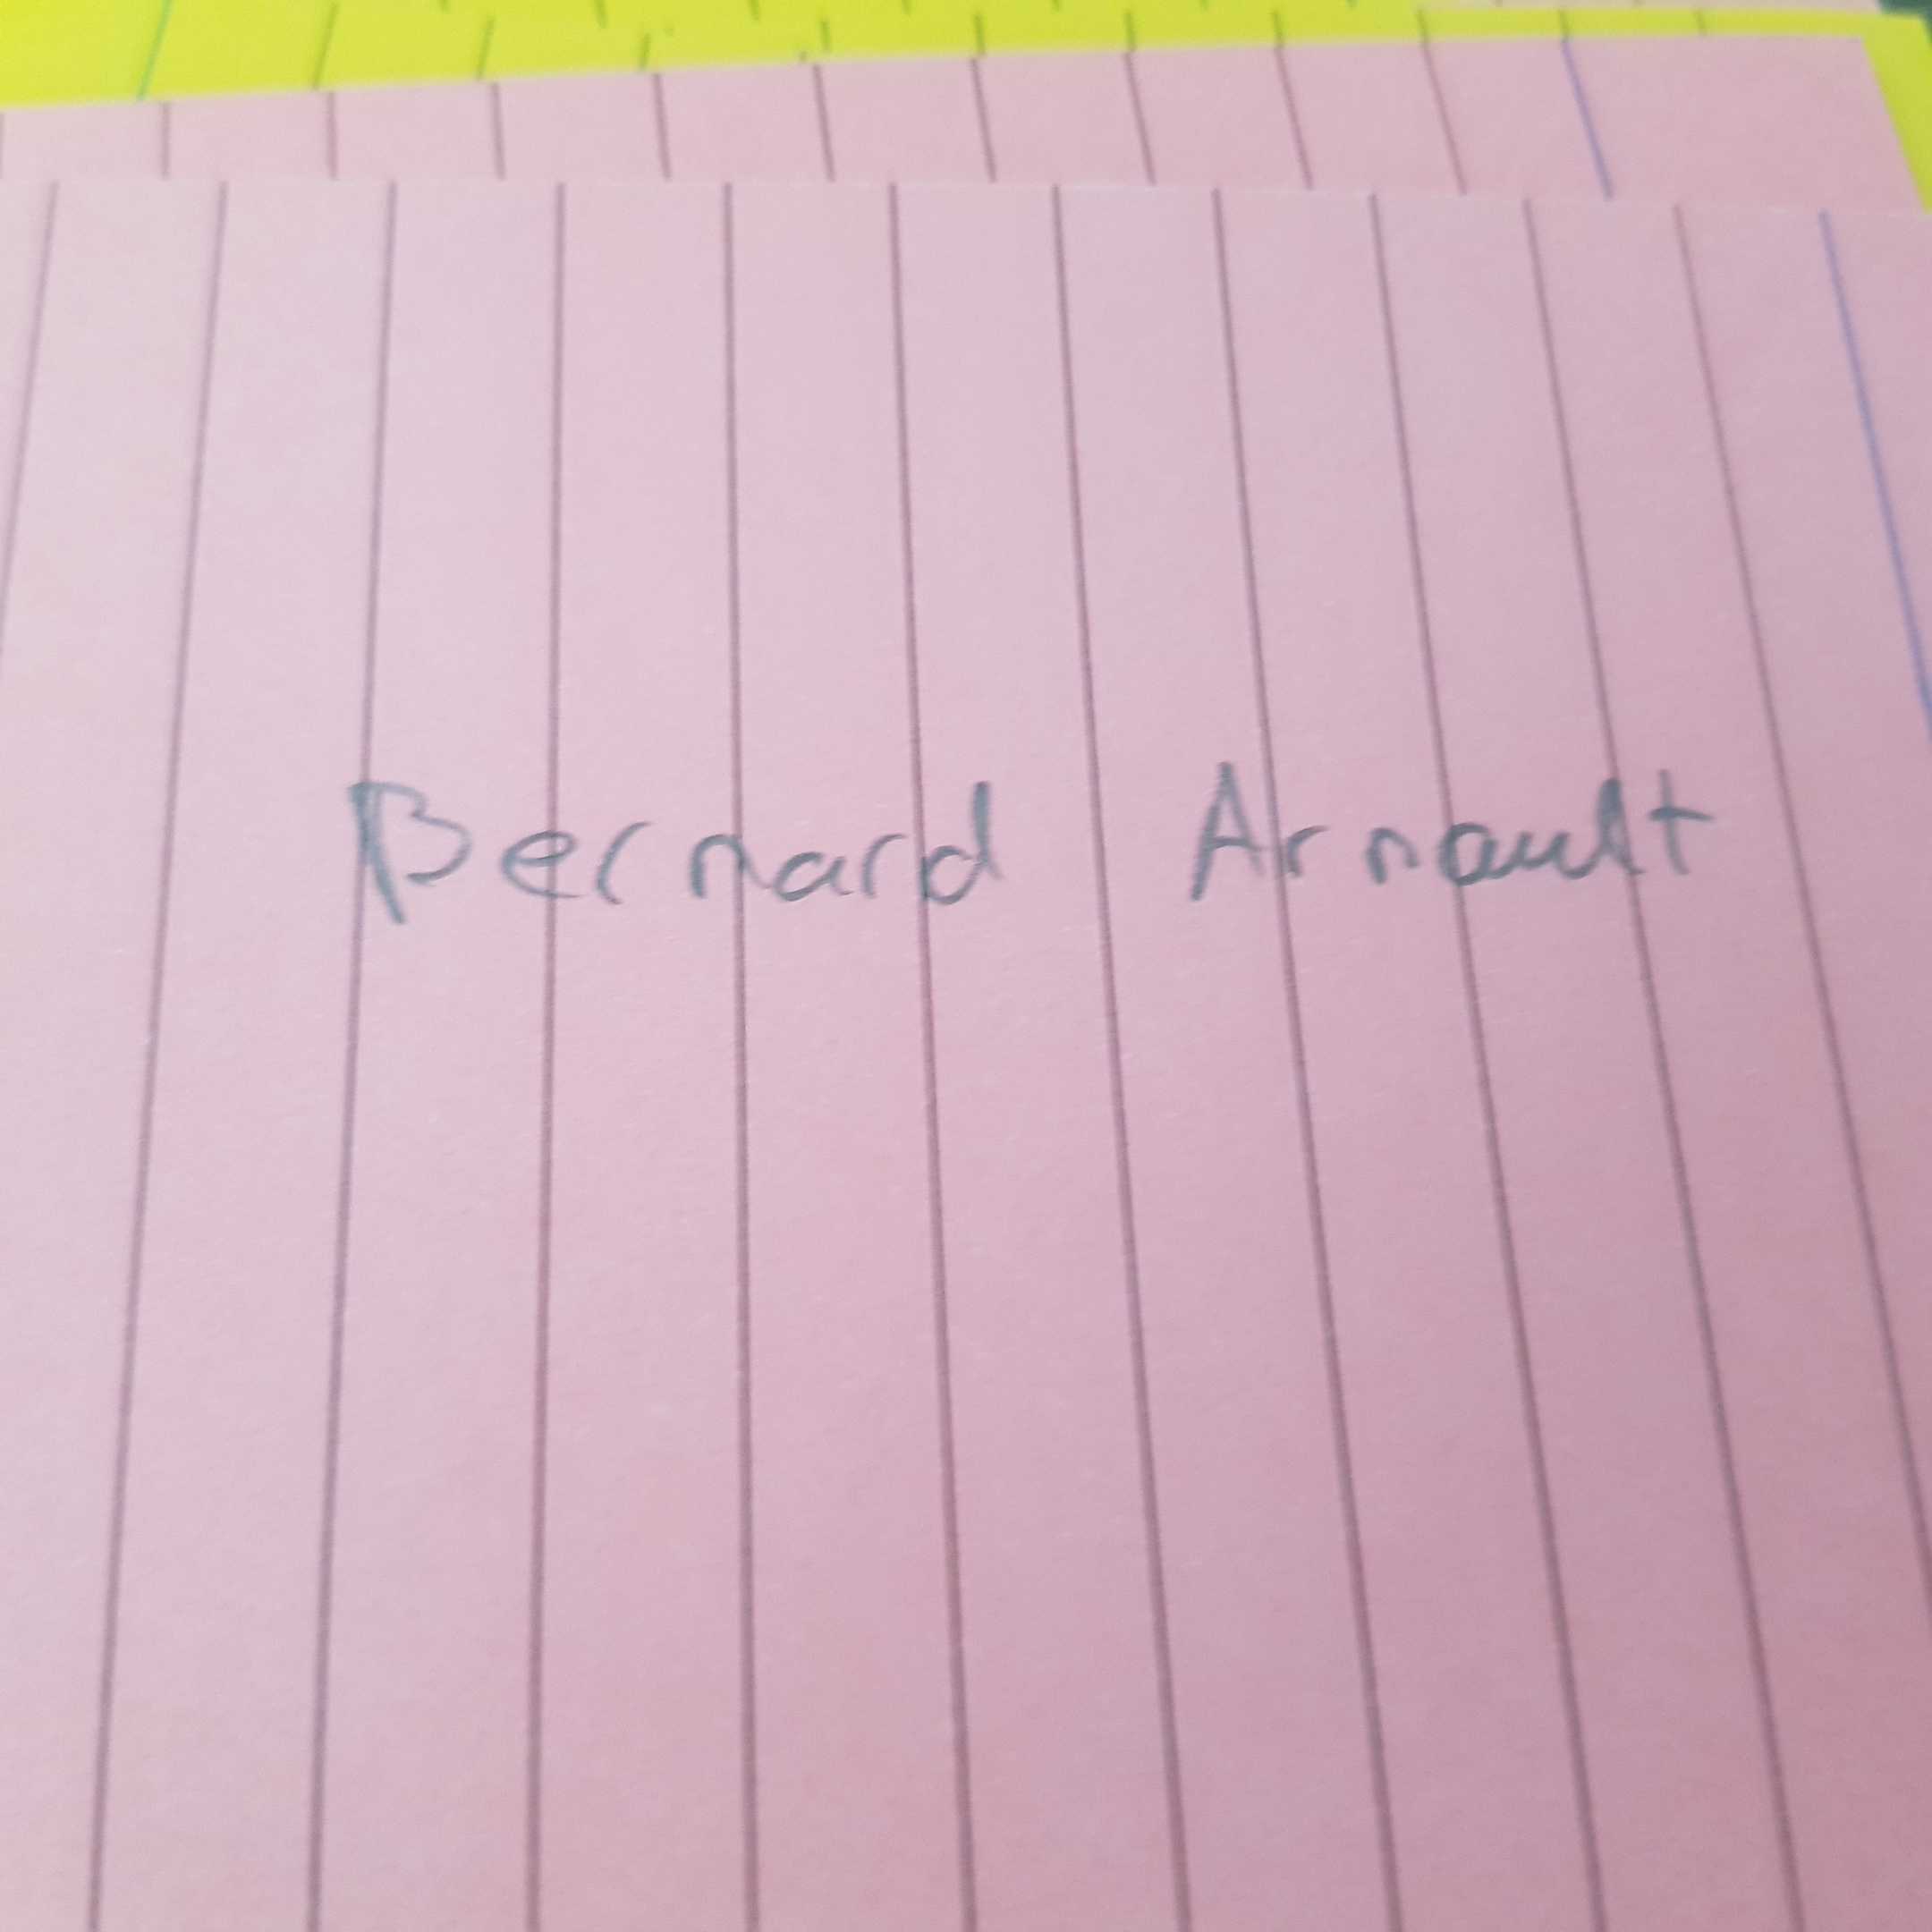 Bernard Arnault